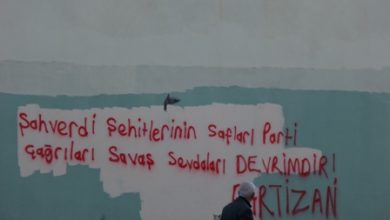 Şahverdi Şehitlerinin Safları Parti
Çağrıları Savaş Sevdaları DEVRİMDİR!
PARTİZAN